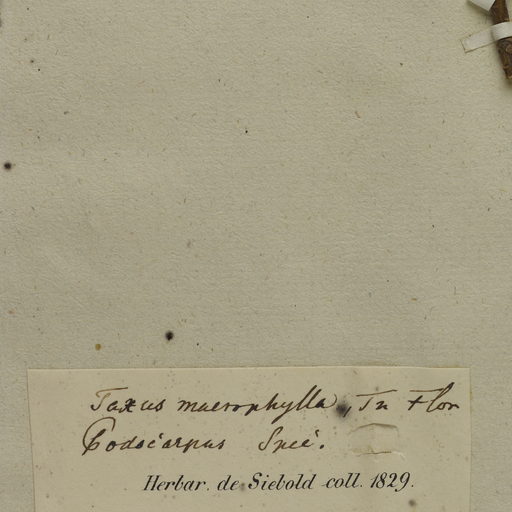 Taxus macrophylla, Tu Flor
Podocarpus Spec.
Herbar. de Siebold coll. 1829.